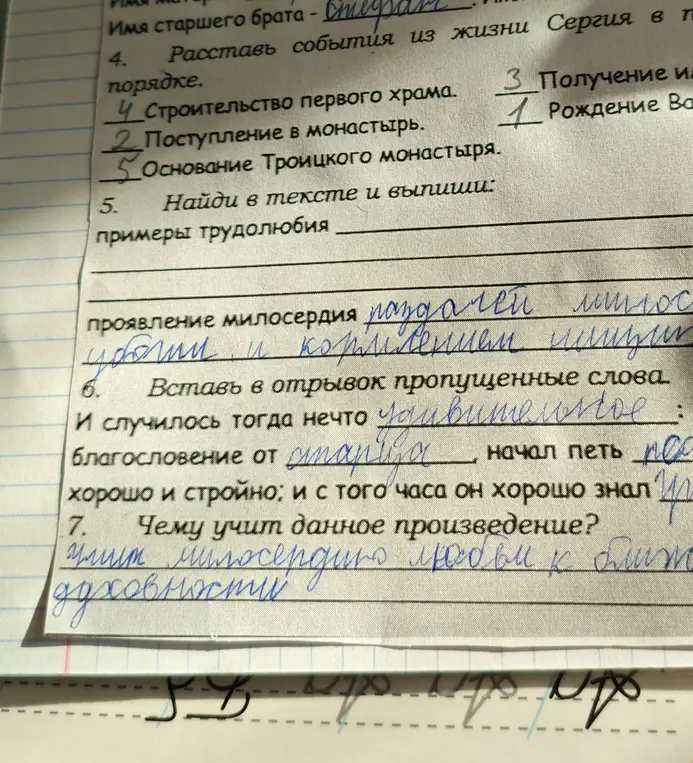 Имя старшего брата - Стефан
4. Расставь события из жизни Сергия в
порядке.
4 Строительство первого храма. 3 Получение
2 Поступление в монастырь. 1 Рождение
5 Основание Троицкого монастыря.
5. Найди в тексте и выпиши:
примеры трудолюбия
проявление милосердия раздачей милос
убогим и кормлением нищих
6. Вставь в отрывок пропущенные слова.
И случилось тогда нечто удивительное :
благословение от старца , начал петь
хорошо и стройно; и с того часа он хорошо знал
7. Чему учит данное произведение?
учит милосердию любви к ближ
ддховности